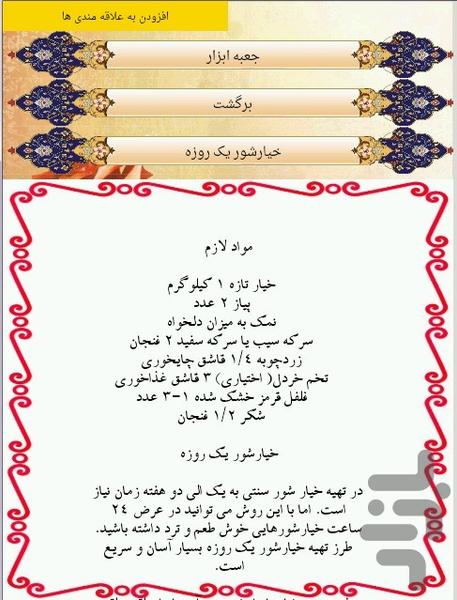 افزودن به علاقه مندی ها
جعبه ابزار
برگشت
خیارشور یک روزه
مواد لازم
خیار تازه ۱ کیلوگرم
پیاز ۲ عدد
نمک به میزان دلخواه
سرکه سیب یا سرکه سفید ۲ فنجان
زردچوبه ۱/۴ قاشق چایخوری
تخم خردل( اختیاری) ۳ قاشق غذاخوری
فلفل قرمز خشک شده ۱-۳ عدد
شکر ۱/۲ فنجان
خیارشور یک روزه
در تهیه خیار شور سنتی به یک الی دو هفته زمان نیاز
است. اما با این روش می توانید در عرض ۲۴
ساعت خیارشورهایی خوش طعم و ترد داشته باشید.
طرز تهیه خیارشور یک روزه بسیار آسان و سریع
است.
بازار